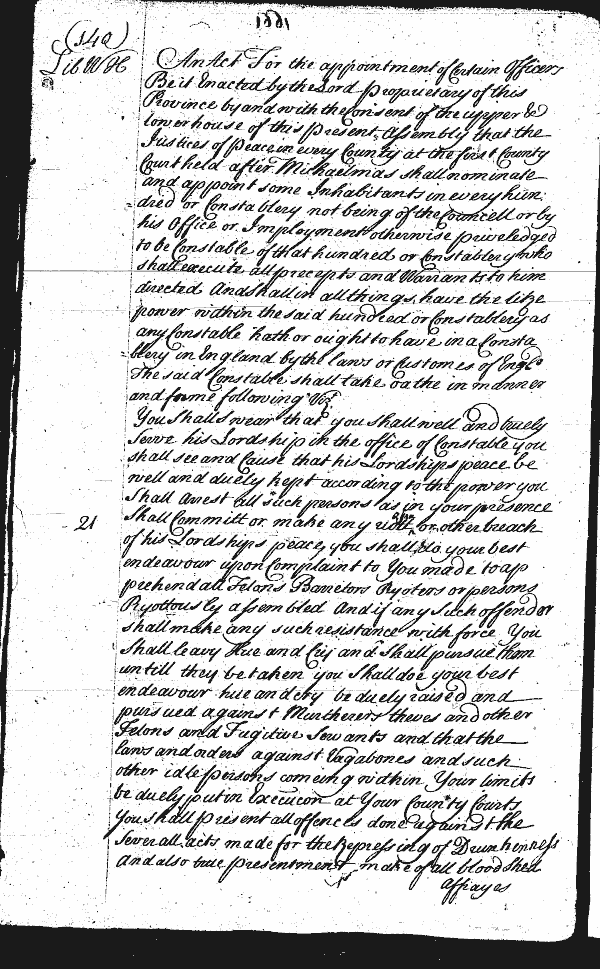 1661
(140)
Lib W H
An Act For the appointment of Certain Officers
Be it Enacted by the Lord Proprietary of this
Province by and with the Consent of the upper &
lower house of this present Assembly that the
Justices of Peace in every County at the first County
Court held after Michaelmas shall nominate
and appoint some Inhabitants in every hun
dred or Constablery not being of the Councell or by
his Office or Imployment otherwise priveledged
to be Constable of that hundred or Constablery who
shall execute all precepts and Warrants to him
directed And shall in all things have the like
power within the said hundred or Constablery as
any Constable hath or ought to have in a Consta
blery in England by the laws or Customes of Engld
The said Constable shall take oathe in manner
and forme following Vizt
You shall swear that you shall well and truely
Serve his Lordship in the office of Constable you
shall see and Cause that his Lordships peace be
well and duely kept according to the power you
Shall Arrest all such persons as in your presence
21
Shall Committ or make any riott or other breach
of his Lordships peace, you shall do your best
endeavour upon Complaint to You made to ap
prehend all Felons Barretors Ryoters or persons
Ryottously assembled And if any Such offendor
shall make any such resistance with force You
Shall leavy Hue and Cry and Shall pursue them
untill they be taken you Shall doe your best
endeavour hue and cry be duely raised and
pursued against Murtherers theves and other
Felons and Fugitive Servants and that the
laws and orders against Vagabones and such
other idle persons comeing within Your limits
be duely put in Execucon at Your County Courts
You shall present all offences done against the
Severall acts made for the Repressing of Drunkenness
And also true presentment make of all bloodshed
affrayes